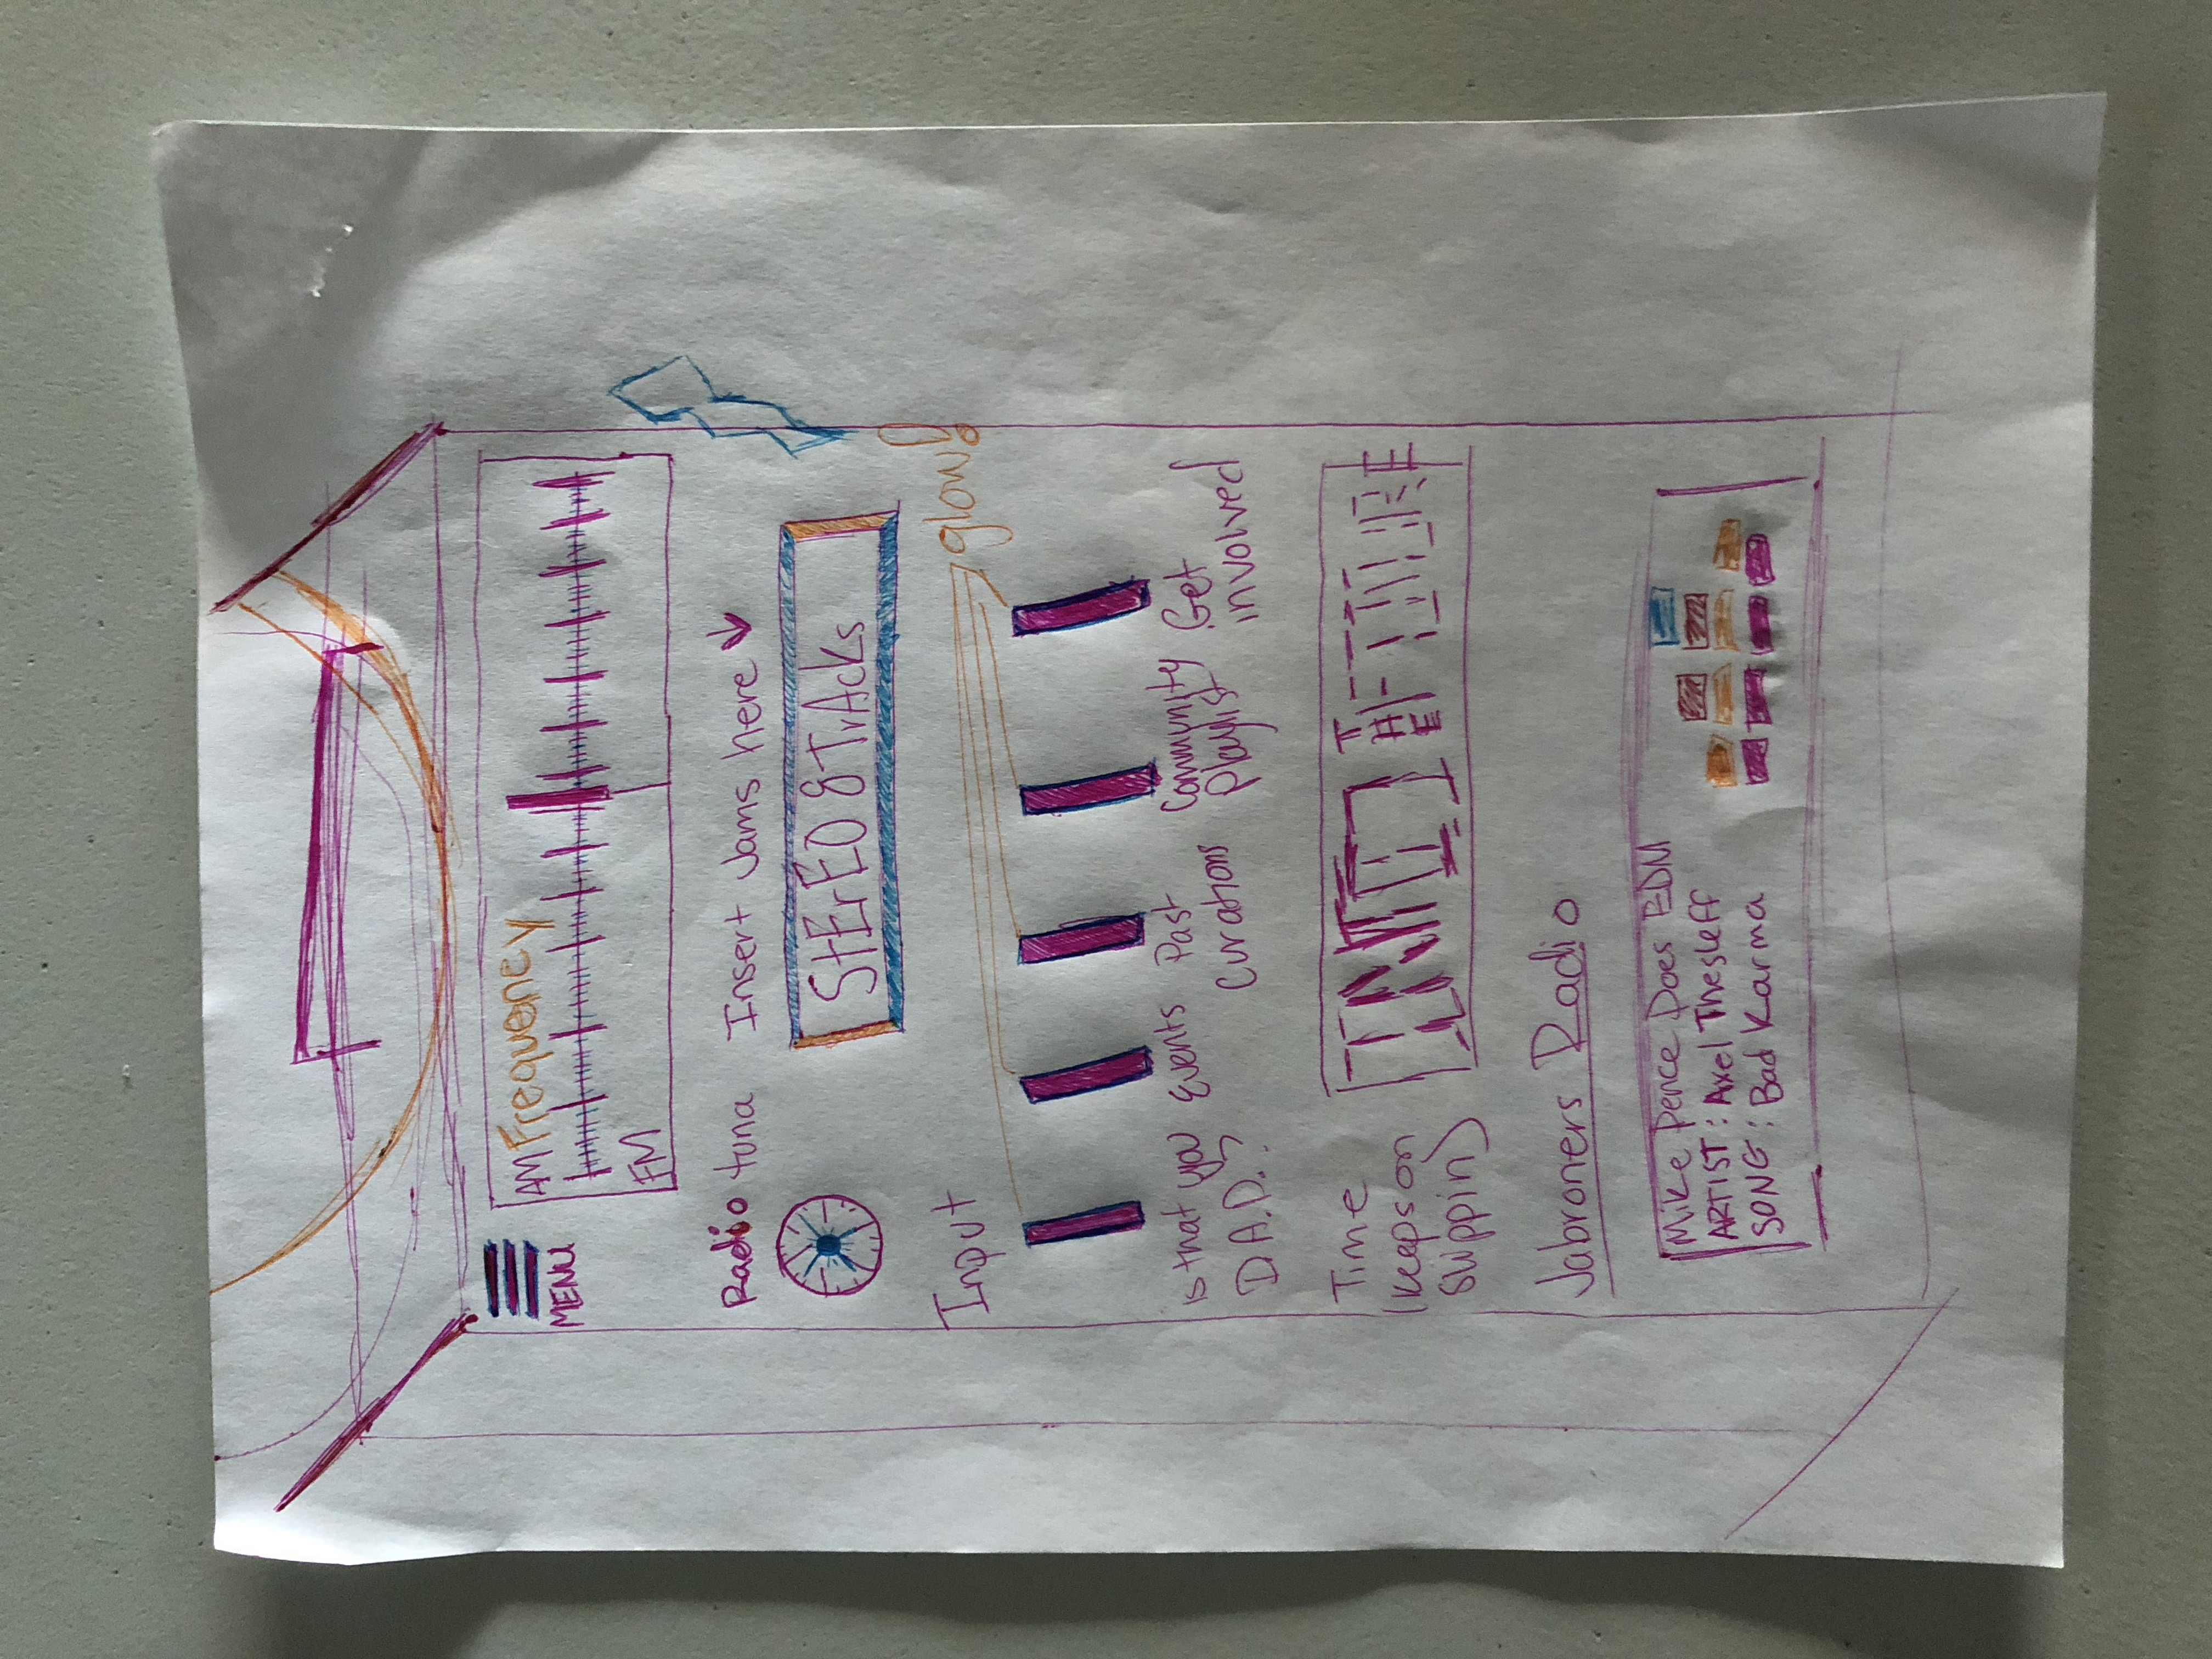 MENU
AM Frequency
FM
Radio tuna
Insert Jams here
StErEO 8 TrAcks
Input
glow!
is that you
D.A.D.?
Events
Past
Curations
Community
Playlist
Get
involved
Time
(keeps on
slippin)
INTO THE FUTURE
Jabroners Radio
Mike Pence Does EDM
ARTIST: Axel Thesleff
SONG: Bad Karma